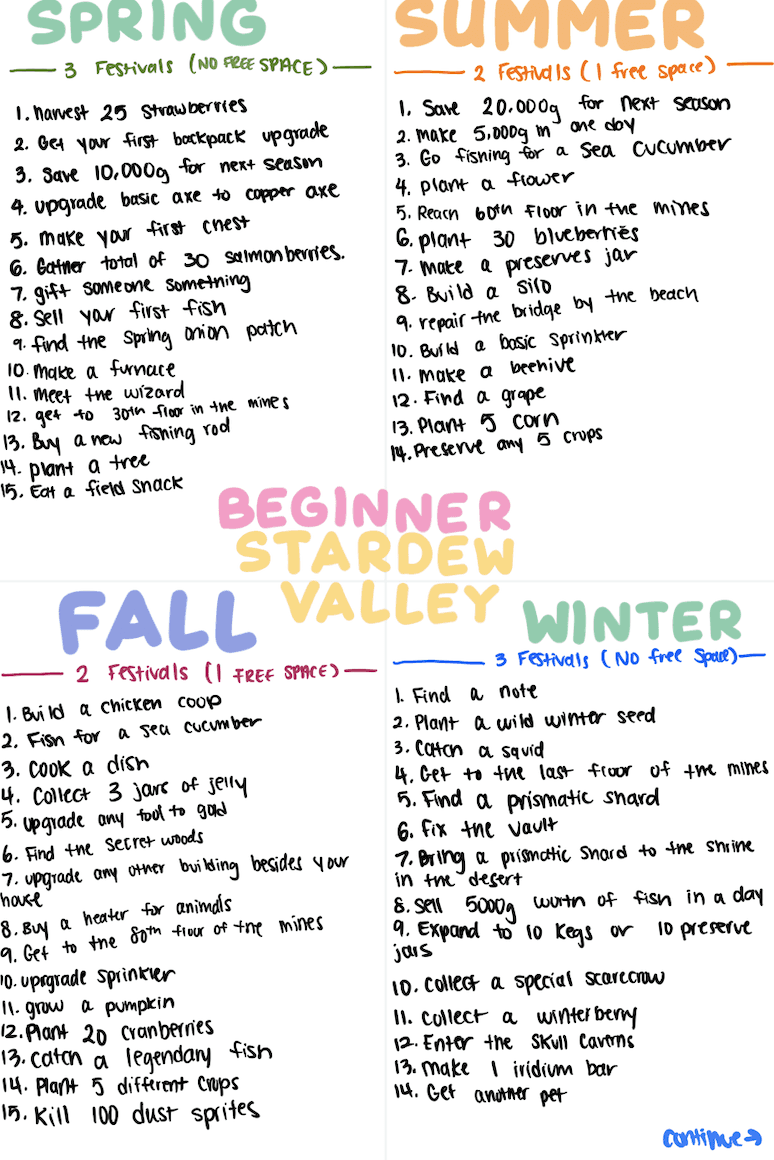 SPRING
3 Festivals (NO FREE SPACE)
1. harvest 25 strawberries
2. Get your first backpack upgrade
3. Save 10,000g for next season
4. upgrade basic axe to copper axe
5. make your first chest
6. Gather total of 30 salmonberries.
7. gift someone something
8. Sell your first fish
9. find the spring onion patch
10. make a furnace
11. meet the wizard
12. get to 30th floor in the mines
13. Buy a new fishing rod
14. plant a tree
15. Eat a field snack
SUMMER
2 Festivals (1 free space)
1. Save 20,000g for next season
2. make 5,000g in one day
3. Go fishing for a sea cucumber
4. plant a flower
5. Reach 60th floor in the mines
6. plant 30 blueberries
7. make a preserves jar
8. Build a silo
9. repair the bridge by the beach
10. Build a basic sprinkler
11. make a beehive
12. Find a grape
13. Plant 5 corn
14. Preserve any 5 crops
BEGINNER
STARDEW
VALLEY
FALL
2 Festivals (1 FREE SPACE)
1. Build a chicken coop
2. Fish for a sea cucumber
3. cook a dish
4. Collect 3 jars of jelly
5. upgrade any tool to gold
6. Find the secret woods
7. upgrade any other building besides your
house
8. Buy a heater for animals
9. Get to the 80th floor of the mines
10. upsgrade sprinkler
11. grow a pumpkin
12. Plant 20 cranberries
13. catch a legendary fish
14. Plant 5 different crops
15. Kill 100 dust sprites
WINTER
3 Festivals (NO free space)
1. Find a note
2. Plant a wild winter seed
3. Catch a squid
4. Get to the last floor of the mines
5. Find a prismatic shard
6. Fix the vault
7. Bring a prismatic shard to the shrine
in the desert
8. Sell 5000g worth of fish in a day
9. Expand to 10 kegs or 10 preserve
jars
10. collect a special scarecrow
11. collect a winterberry
12. Enter the Skull Caverns
13. make 1 iridium bar
14. Get another pet
continue→